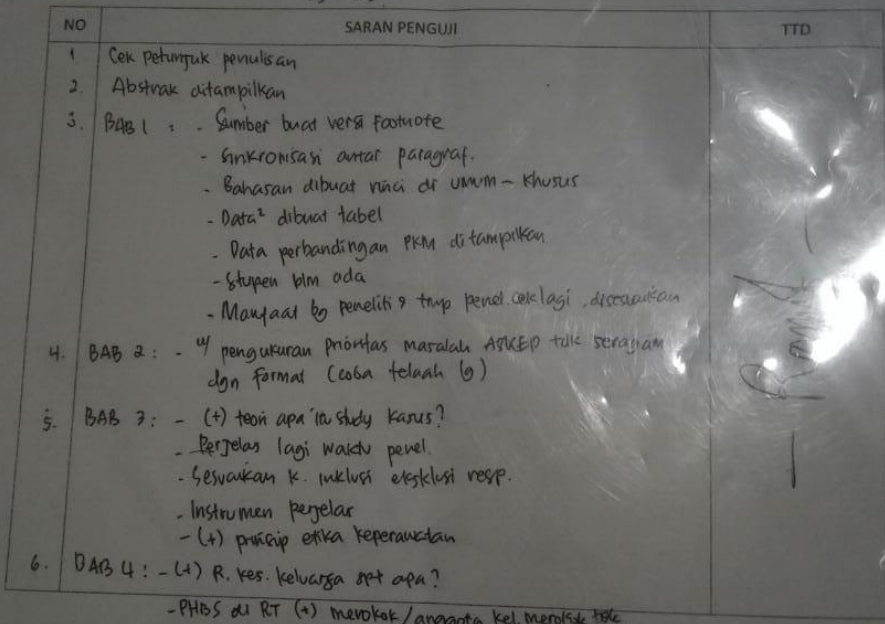 NO SARAN PENGUJI TTD
1 Cek petunjuk penulisan
2. Abstrak ditampilkan
3. BAB 1 : - Sumber buat versi footnote
- Sinkronisasi antar paragraf.
- Bahasan dibuat rinci dr umum - khusus
- Data² dibuat tabel
- Data perbandingan PKM ditampilkan
- Stupen blm ada
- Manfaat bg peneliti & tmp penel. cek lagi, disesuaikan
4. BAB 2 : - u/ pengukuran prioritas masalah ASKEP tdk seragam
dgn format (coba telaah lg)
5. BAB 3 : - (+) teori apa itu study kasus?
- Perjelas lagi waktu penel.
- Sesuaikan k. inklusi eksklusi resp.
- Instrumen perjelas
- (+) prinsip etika keperawatan
6. BAB 4 : - (+) R. kes. keluarga spt apa?
- PHBS di RT (+) merokok / anggota kel. merokok